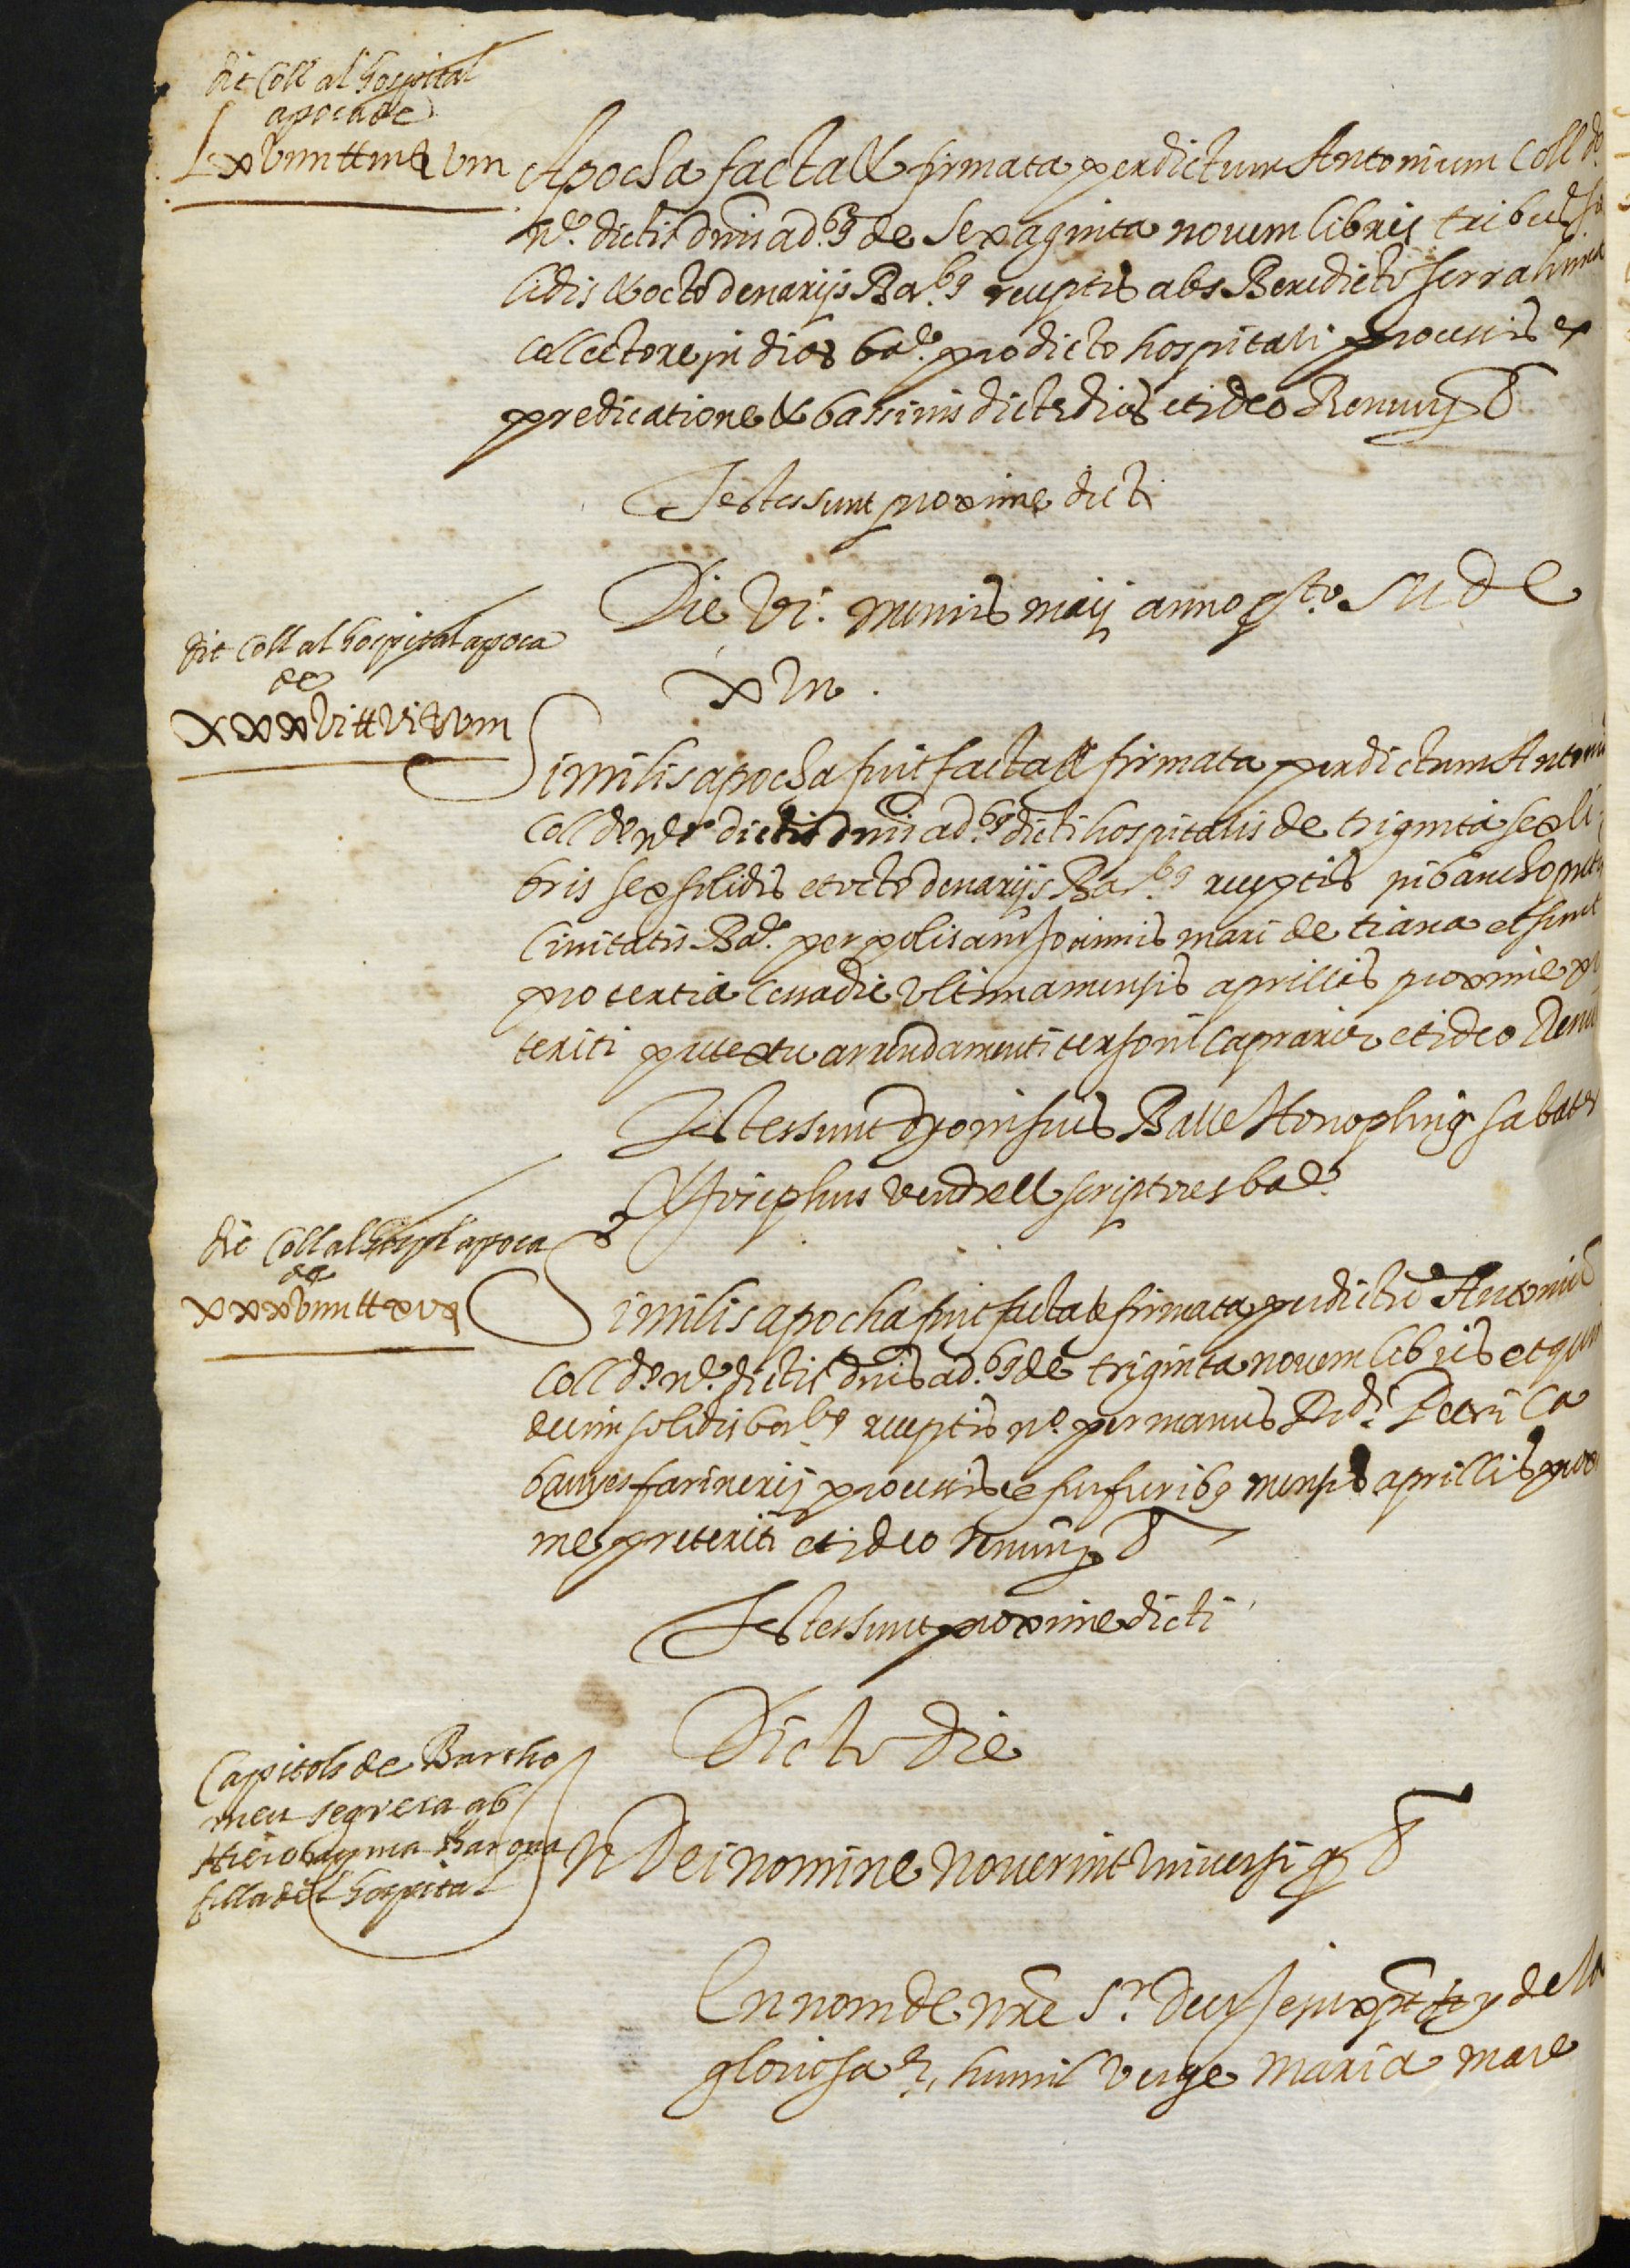 dit Coll al hospital
apoca de
Lxviiii ₶ iii ẜ viii
Apocha facta & firmata per dictum Antonium Coll d.º
n.e dictis dnis ad.bs de sexaginta novem libris tribus so
lidis & octo denarijs Bar.bs receptis abs Benedicto serrahima
collectore in dioc̃ bar.e pro dicto hospitali processis ex
predicatione & bassinis dicte dioc̃ et ideo Renun &̃
Testes sunt proxime dicti
Die vi. mensis maij anno pst.º MDL
xviii.
dit Coll al hospital apoca
de
xxxvi ₶ vi ẜ viii
Similis apocha fuit facta & firmata per dictum Antoniũ
Coll d.º n.e dictis dnis ad.bs dicti hospitalis de triginta sex li
bris sex solidis et octo denarijs Bar.bs receptis in bancho
Civitatis Bar.e per polisam Joannis mari de tiana et sunt
pro tertia cessa die ultima mensis aprillis proxime p
teriti pretextu arrendamenti ternorii caprarie et ideo Renũ
Testes sunt Dyonisius Balle Honophrius sabater
& Josephus vendrell scriptores bar.e
dit Coll al hospl apoca
de
xxxviiii ₶ xv ẜ
Similis apocha fuit facta & firmata per dictũ Antoniũ
Coll d.º n.e dictis dnis ad.bs de triginta novem libris et quin
decim solidis bar.bs receptis n.e per manus Rdi. Petri Ca
banyes farinerij processis e furfuribs mensis aprillis proxi
me preteriti et ideo Renun &̃
Testes sunt proxime dicti
Dicto die
Capitols de Bartho
meu segrera ab
Hieronyma Barona
filla del hospital
In Dei nomine Noverint universi q &̃
En nom de nrẽ Sr. Deu Jesu xpst y de la
gloriosa e, humil verge maria mare